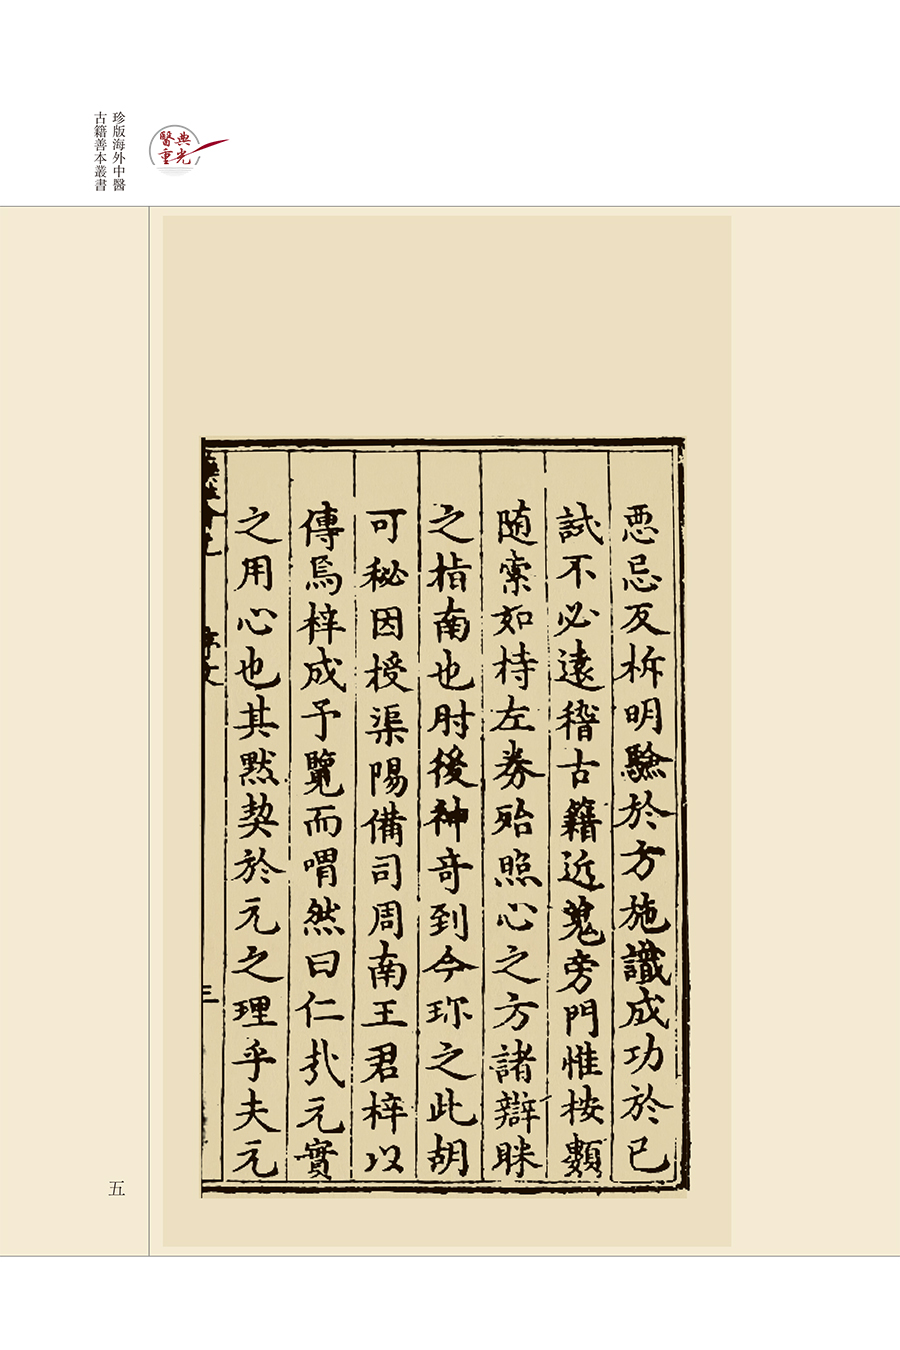 珍版海外中醫
古籍善本叢書
醫典
重光
惡忌反柝明驗於方施讖成功於已
試不必遠稽古籍近蒐旁門惟按類
随索如持左券殆照心之方諸辯眯
之指南也肘後神奇到今珎之此胡
可秘因授渠陽備司周南王君梓以
傳焉梓成予覽而喟然曰仁㢤元實
之用心也其默契於元之理乎夫元
序文
三
五